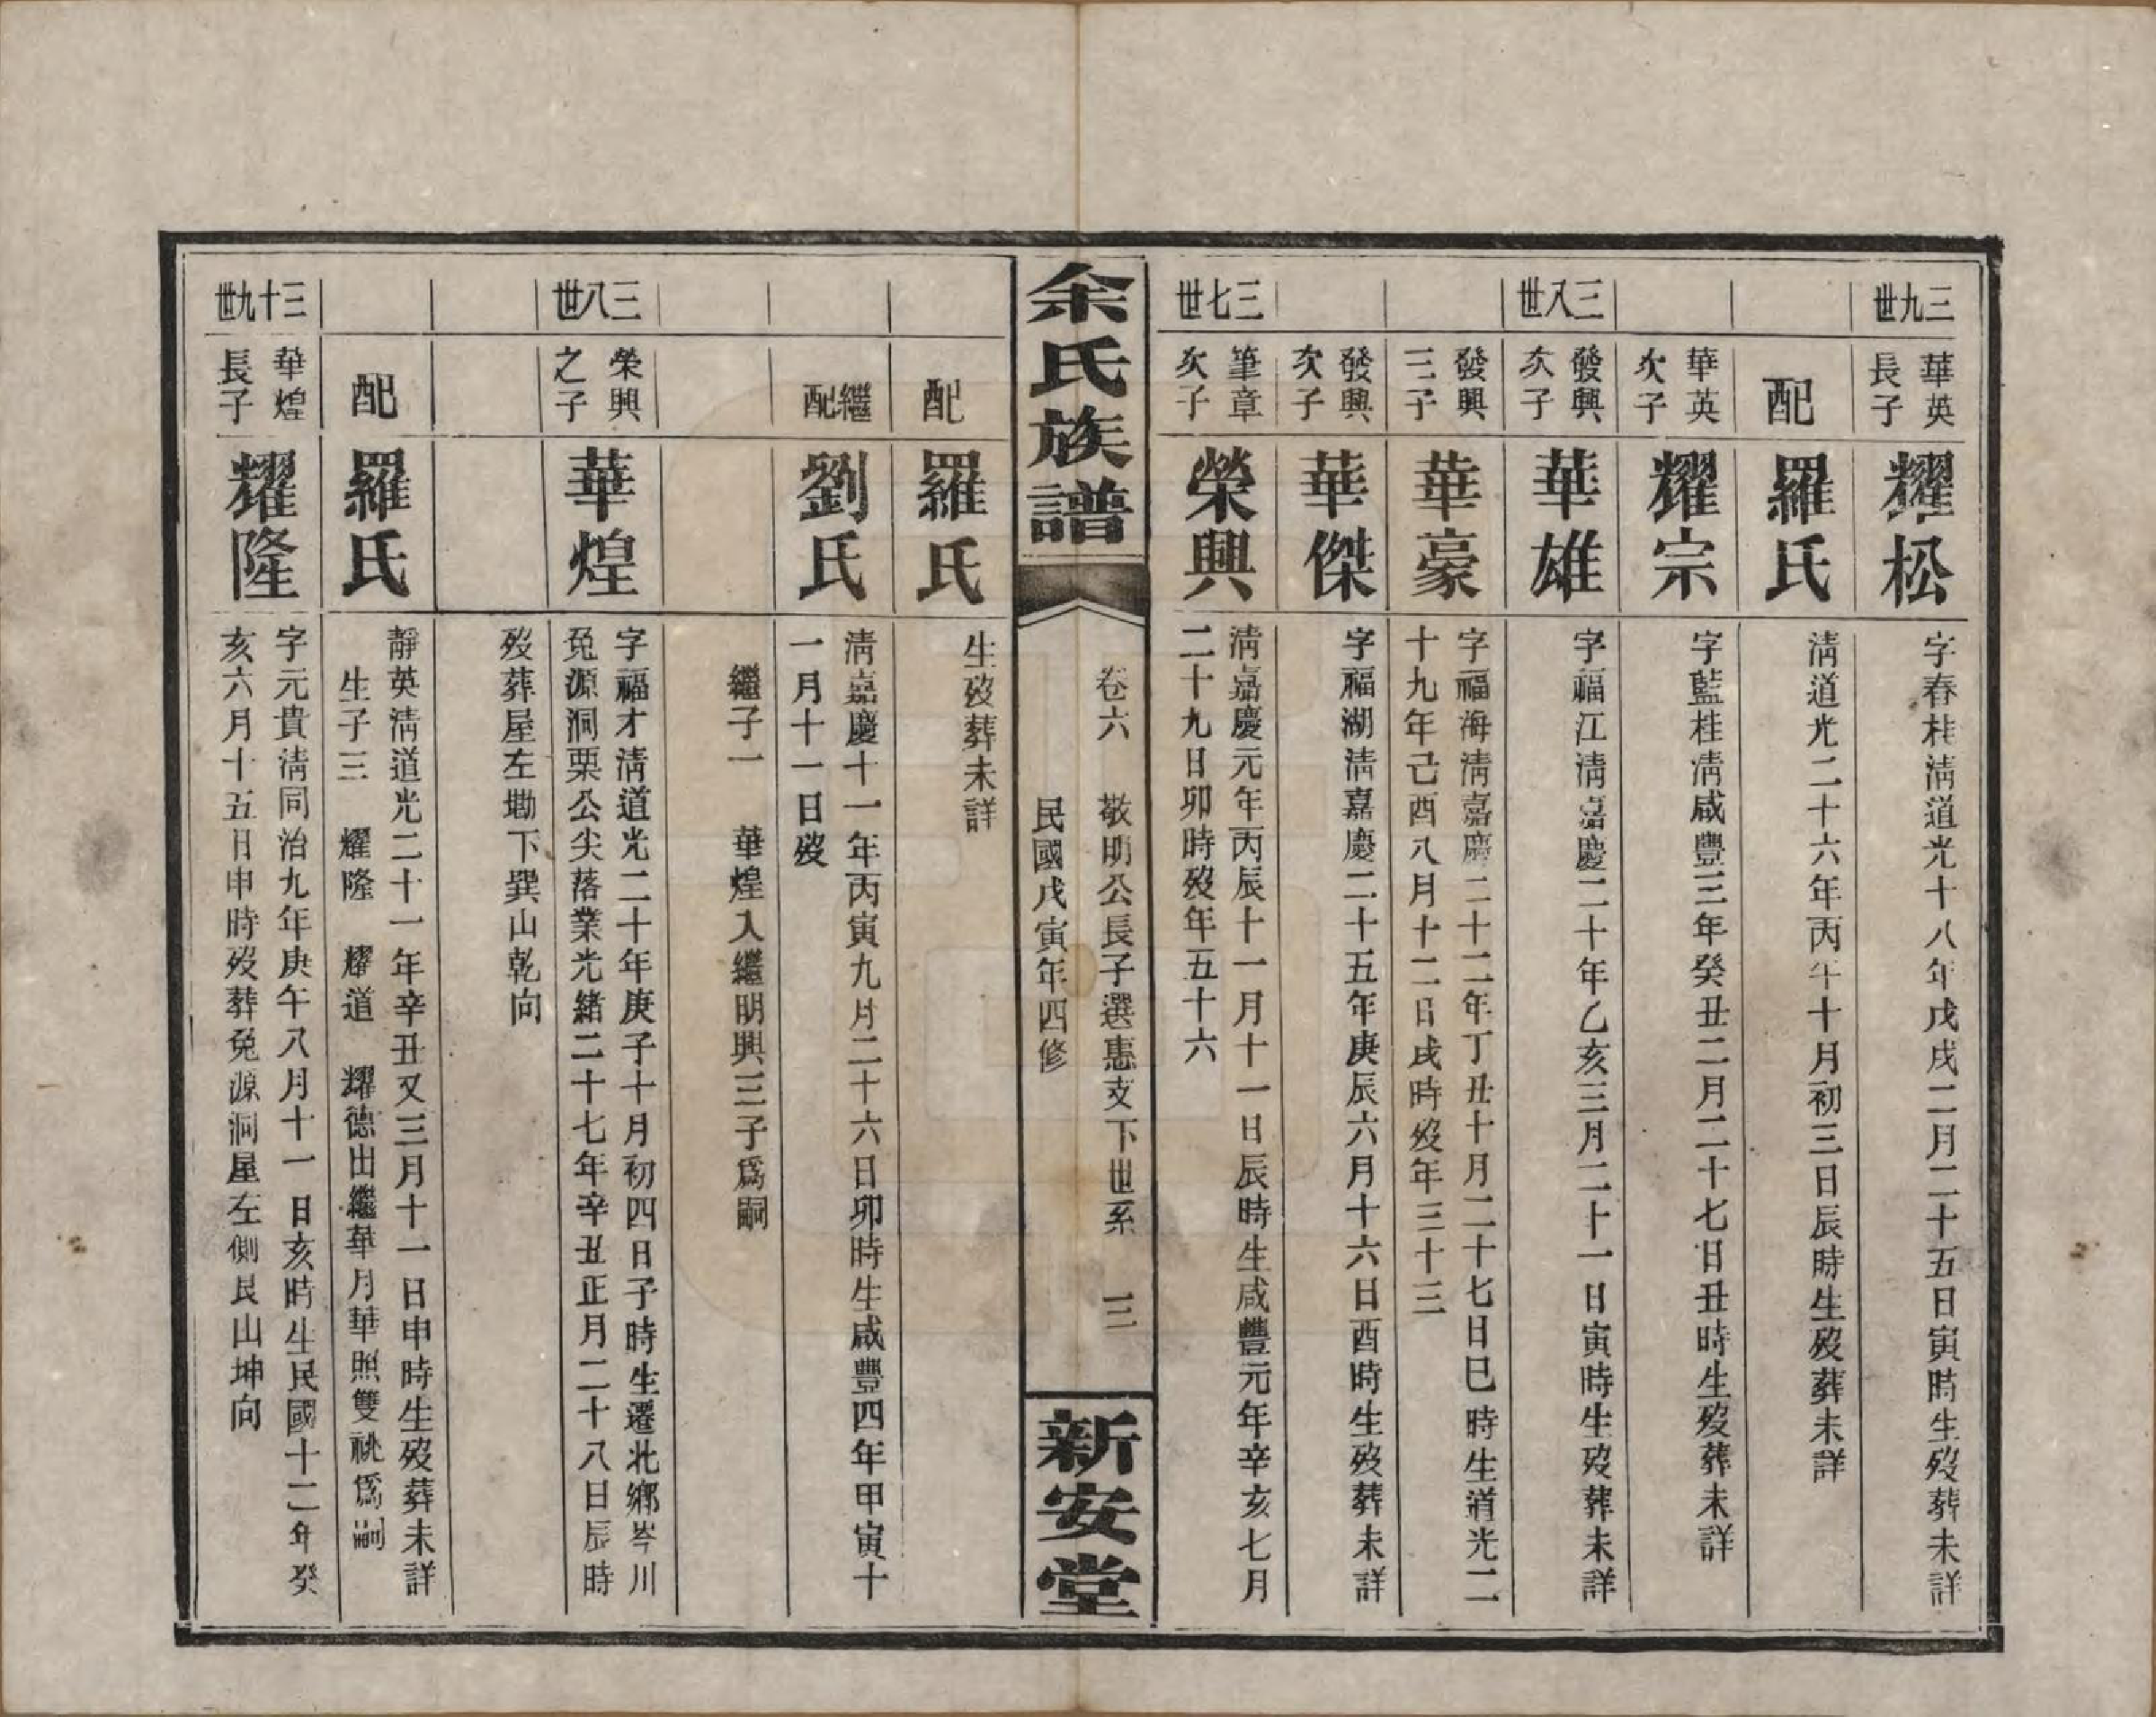 三九世
華英
長子
耀松
字春桂淸道光十八年戊戌二月二十五日寅時生歿葬未詳
配
羅氏
淸道光二十六年丙午十月初三日辰時生歿葬未詳
華英
次子
耀宗
字藍桂淸咸豐三年癸丑二月二十七日丑時生歿葬未詳
三八世
發興
次子
華雄
字福江淸嘉慶二十年乙亥三月二十一日寅時生歿葬未詳
發興
三子
華豪
字福海淸嘉慶二十二年丁丑十月二十七日巳時生道光二
十九年己酉八月十二日戌時歿年三十三
發興
次子
華傑
字福湖淸嘉慶二十五年庚辰六月十六日酉時生歿葬未詳
三七世
筆章
次子
榮興
淸嘉慶元年丙辰十一月十一日辰時生咸豐元年辛亥七月
二十九日卯時歿年五十六
余氏族譜
卷六 敬明公長子選惠支下世系 三
民國戊寅年四修
新安堂
配
羅氏
生歿葬未詳
繼配
劉氏
淸嘉慶十一年丙寅九月二十六日卯時生咸豐四年甲寅十
一月十一日歿
繼子一 華煌入繼明興三子爲嗣
三八世
榮興
之子
華煌
字福才淸道光二十年庚子十月初四日子時生遷北鄉岑川
兔源洞栗公尖落業光緒二十七年辛丑正月二十八日辰時
歿葬屋左墈下巽山乾向
配
羅氏
靜英淸道光二十一年辛丑又三月十一日申時生歿葬未詳
生子三 耀隆 耀道 耀德出繼華月華照雙祧爲嗣
三十九世
華煌
長子
耀隆
字元貴淸同治九年庚午八月十一日亥時生民國十二年癸
亥六月十五日申時歿葬兔源洞屋左側艮山坤向